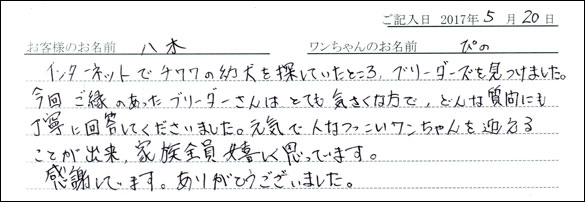 ご記入日 2017年 5月 20日
お客様のお名前 八木 ワンちゃんのお名前 ぴの
インターネットでチワワの幼犬を探していたところ、ブリーダーズを見つけました。
今回ご縁のあったブリーダーさんはとても気さくな方で、どんな質問にも
丁寧に回答してくださいました。元気で人なつっこいワンちゃんを迎える
ことが出来、家族全員嬉しく思っています。
感謝しています。ありがとうございました。